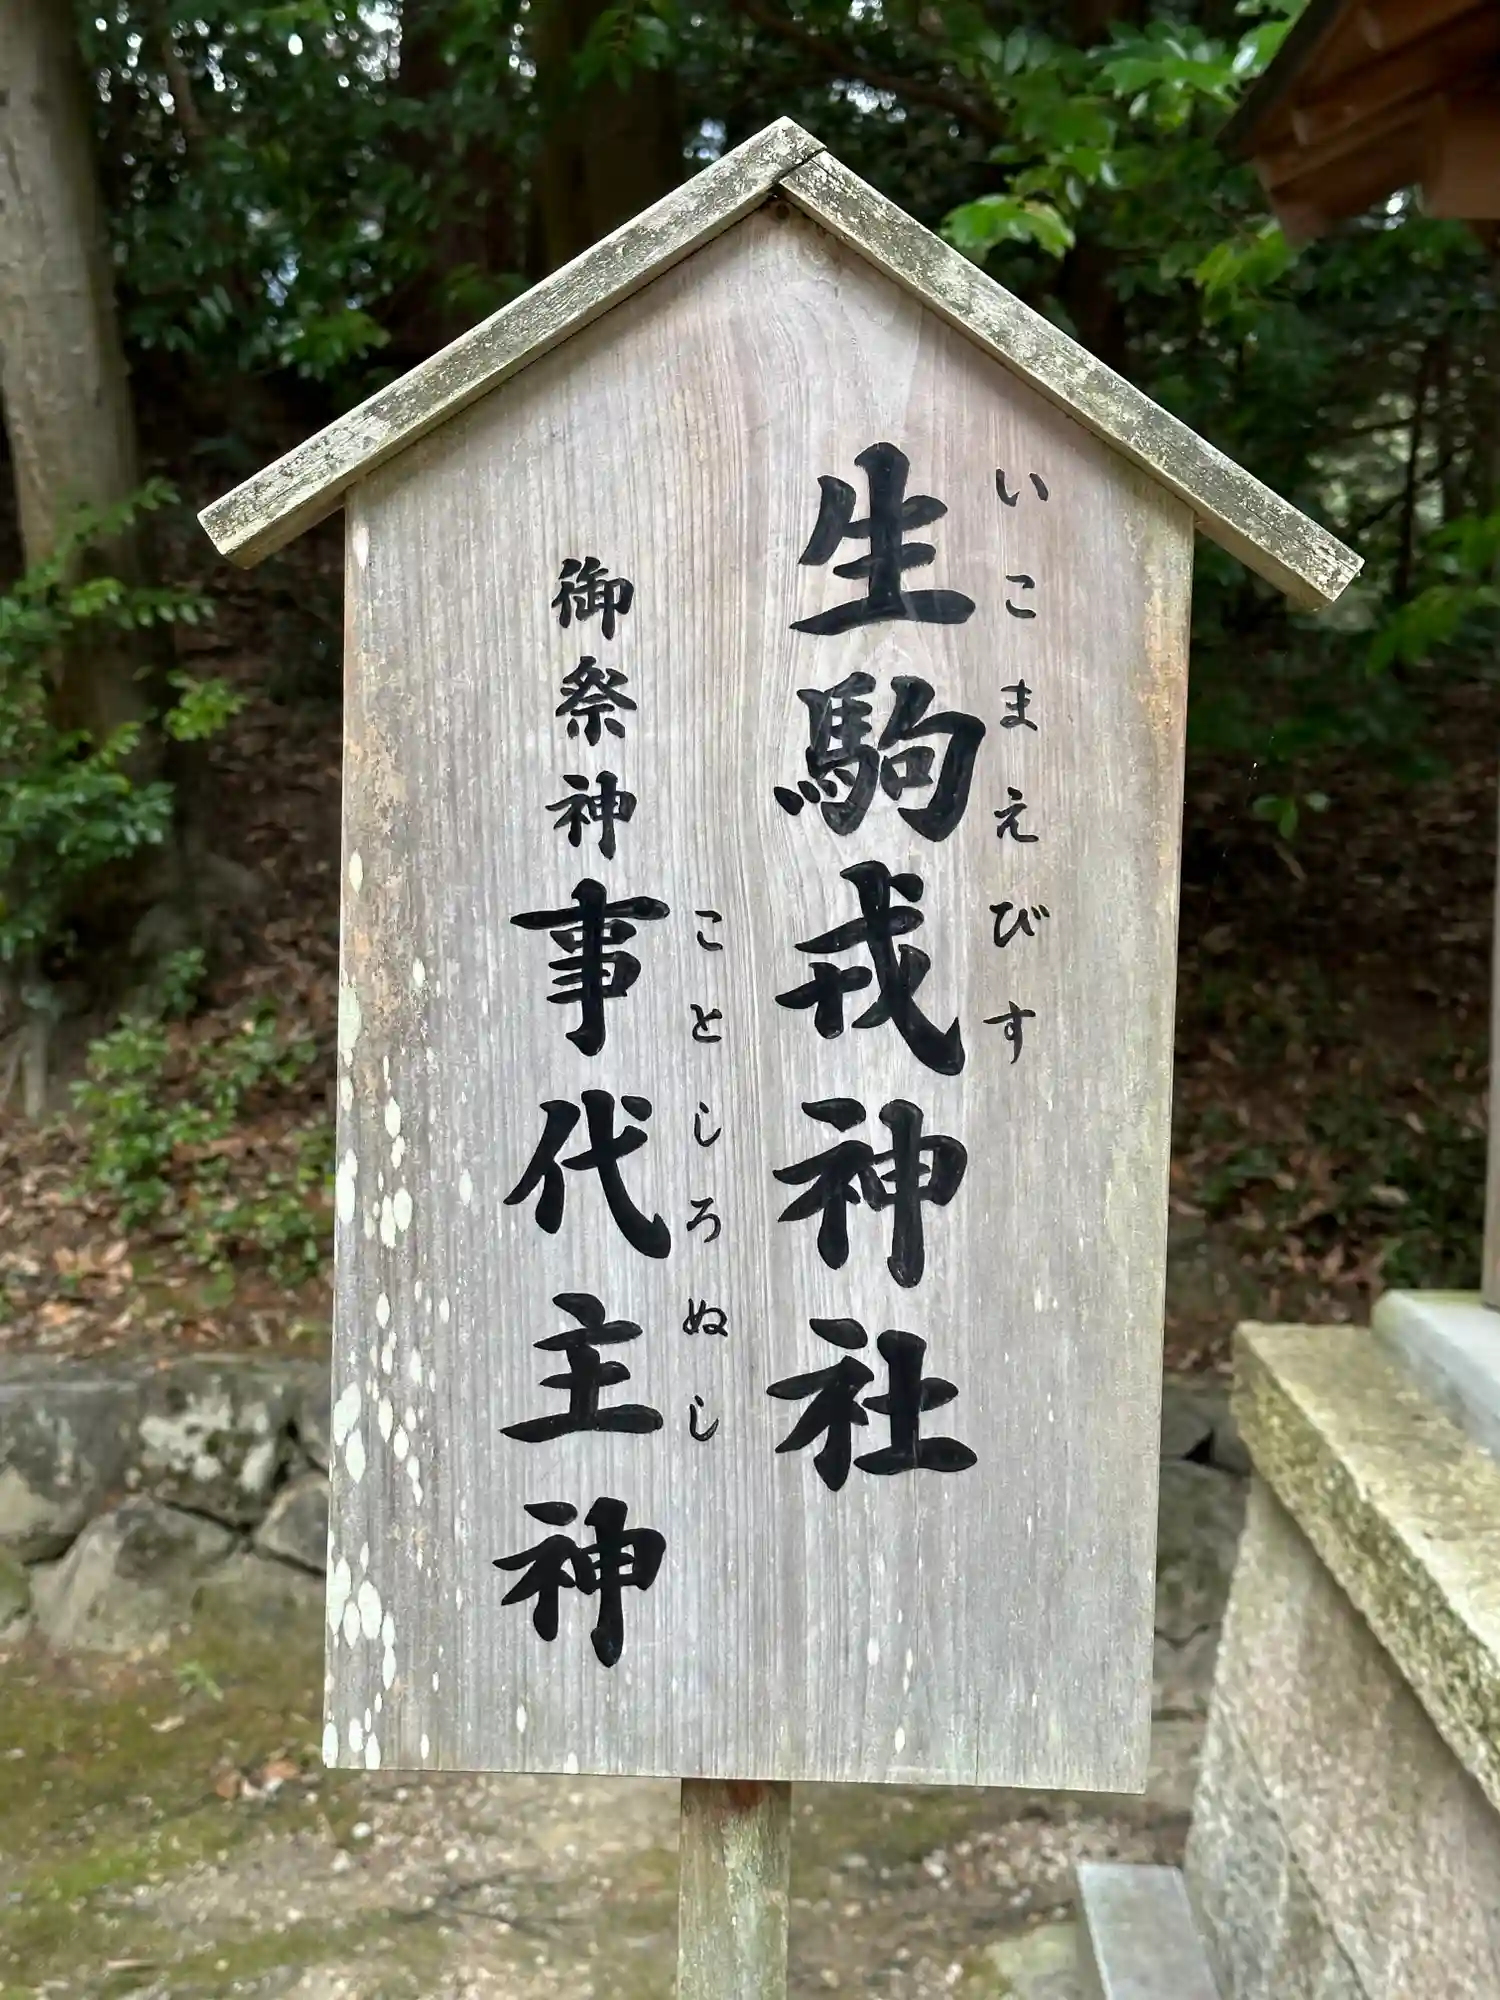 いこまえびす
生駒戎神社
ことしろぬし
御祭神事代主神